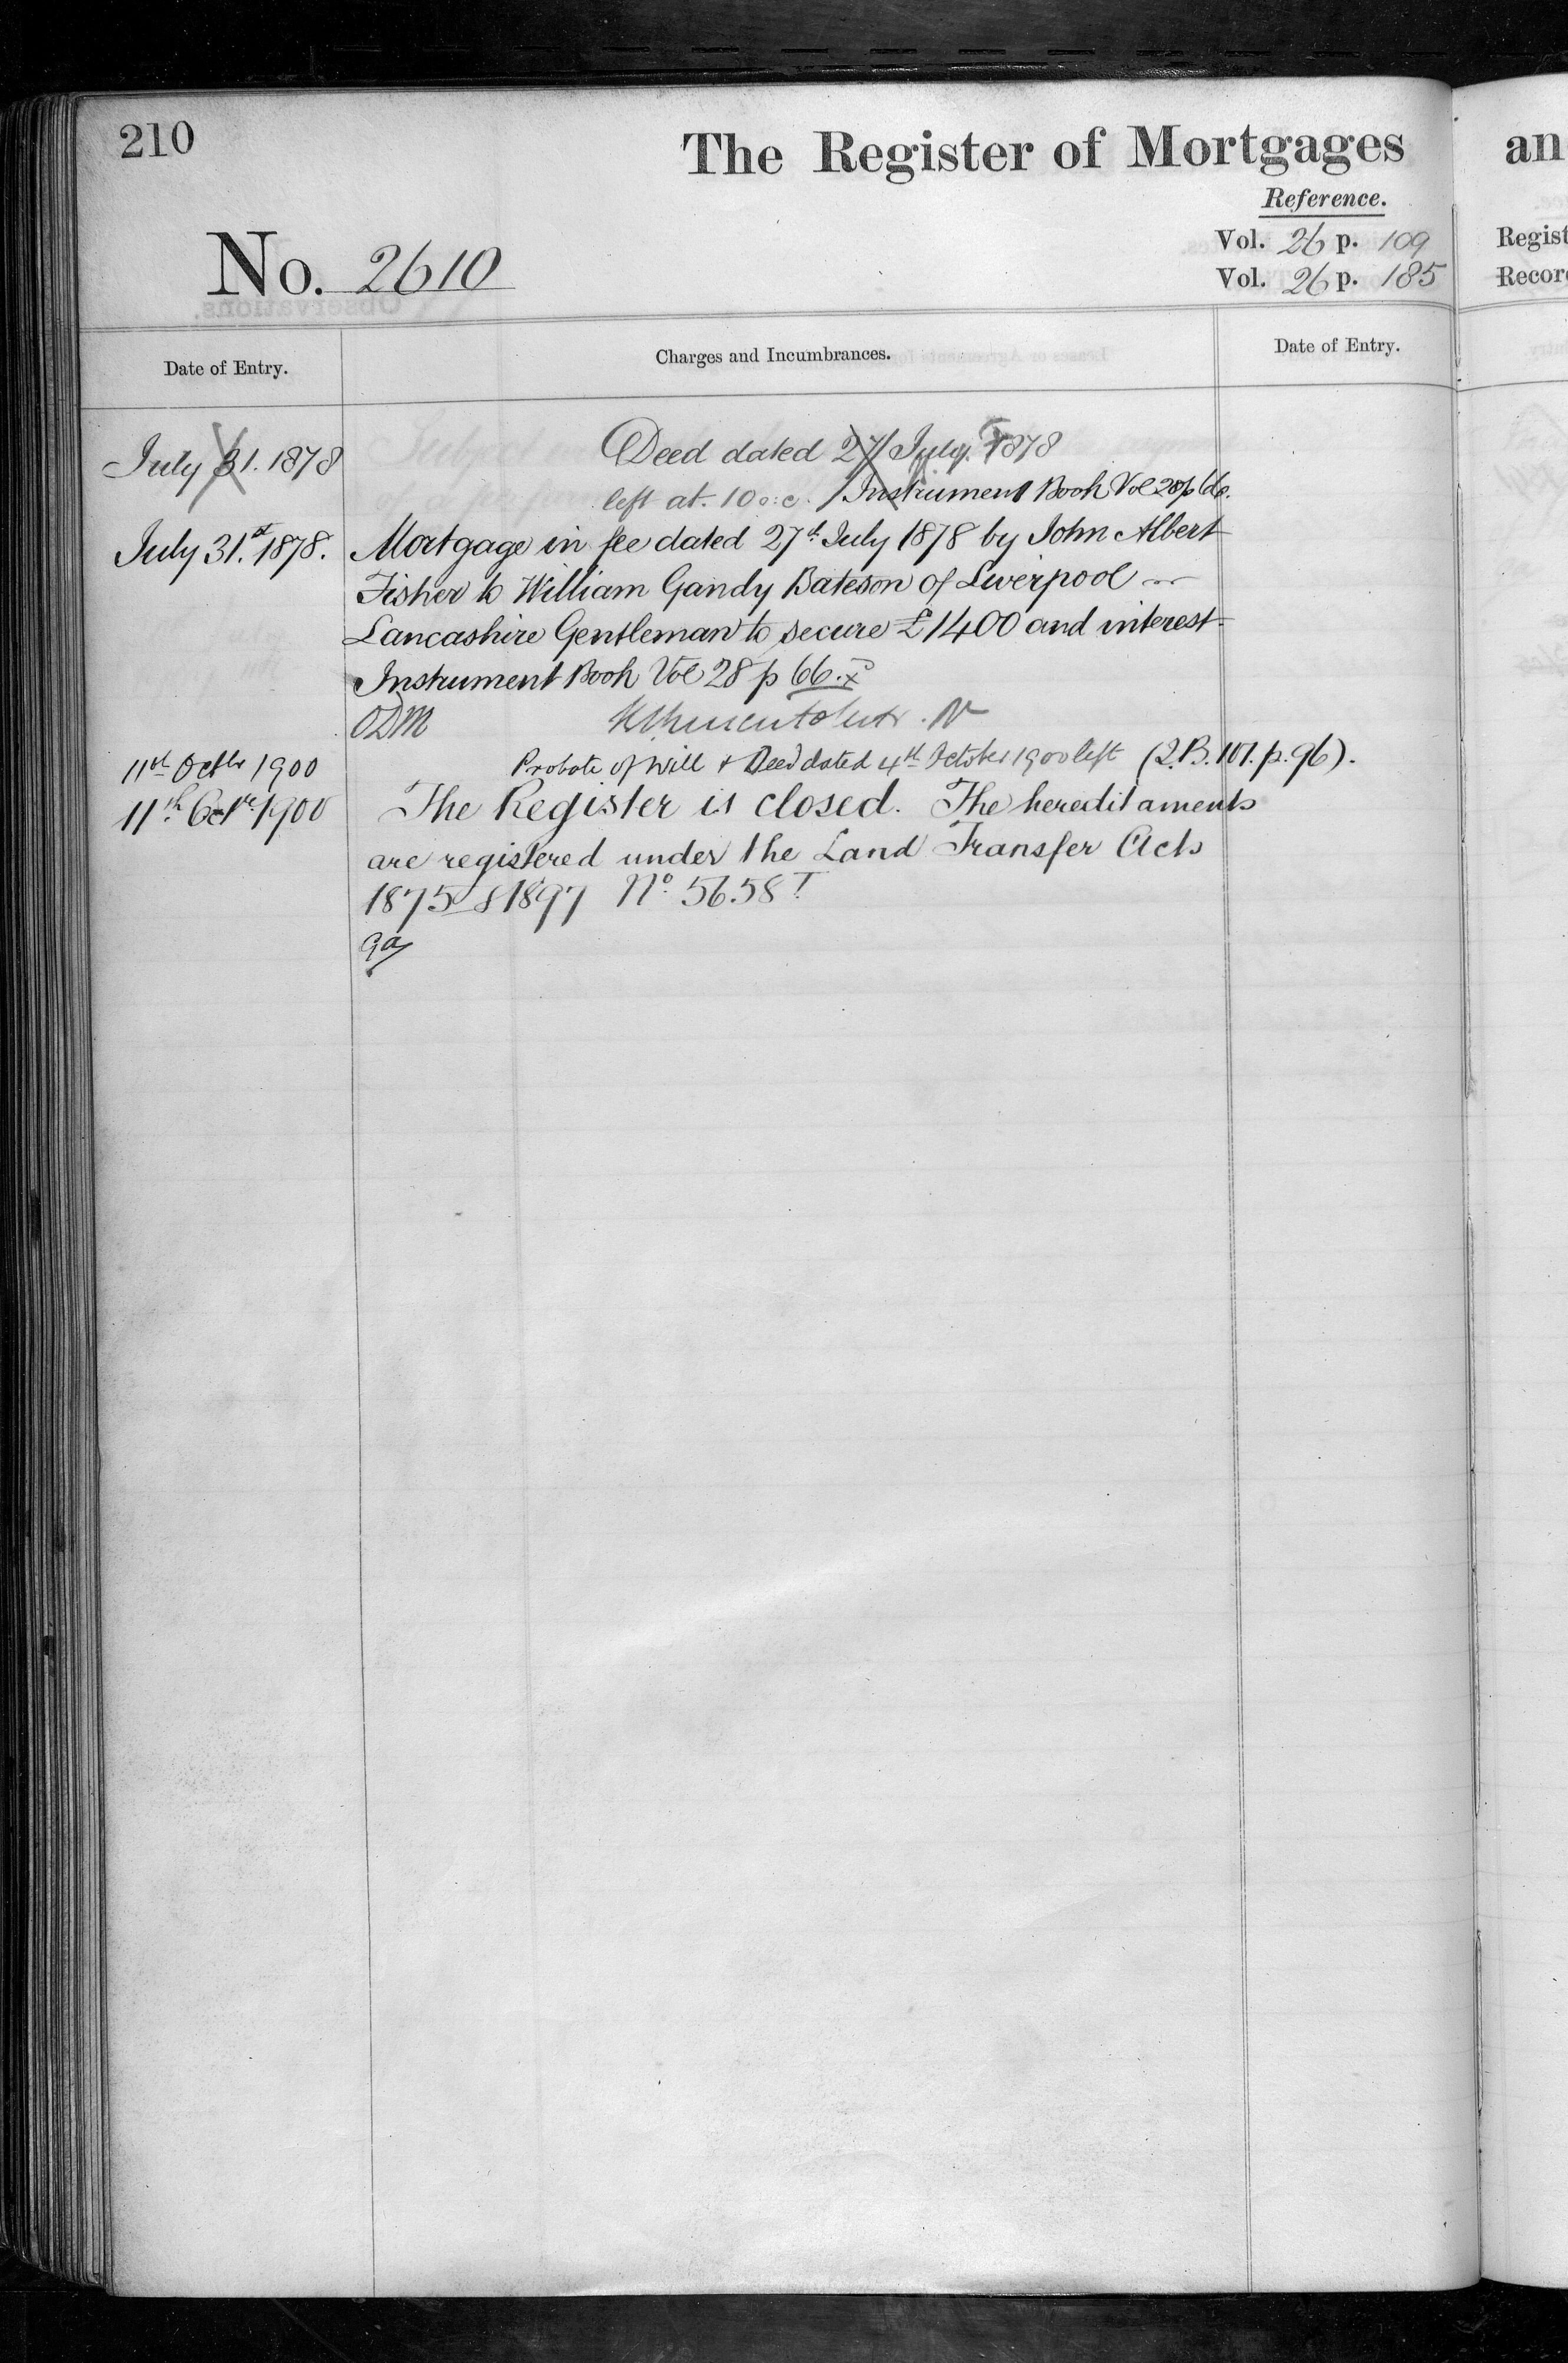 210
The Register of Mortgages
an
Reference.
No. 2610
Vol. 26 p. 109
Regist
Vol. 26 p. 185
Record
Date of Entry.
Charges and Incumbrances.
Date of Entry.
July 31. 1878
Deed dated 27 July. 1878
left at 10 o:c. / Instrument Book Vol 28 p 66.
July 31.st 1878.
Mortgage in fee dated 27th July 1878 by John Albert
Fisher to William Gandy Bateson of Liverpool
Lancashire Gentleman to secure £1400 and interest
Instrument Book Vol 28 p 66.
ODM
11th Octbr 1900
Probate of Will & Deed dated 4th October 1900 left (I.B. 107. p. 96).
11th Octr 1900
The Register is closed. The hereditaments
are registered under the Land Transfer Acts
1875 & 1897 No. 5658